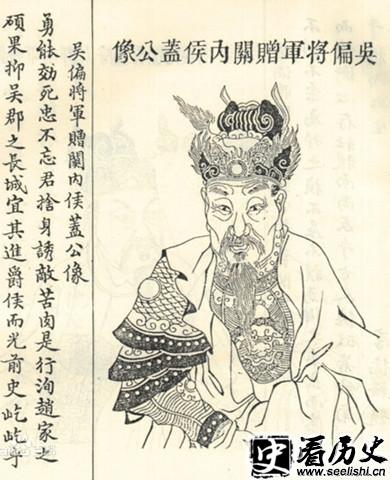 吳偏將軍贈關內侯蓋公像
吳偏將軍贈關內侯蓋公像
勇能効死忠不忘君捨身誘敵苦肉是行洵趙家之
碩果抑吳郡之長城宜其進爵侯而光前史屹屹乎
史看历史
www.seelishi.cn